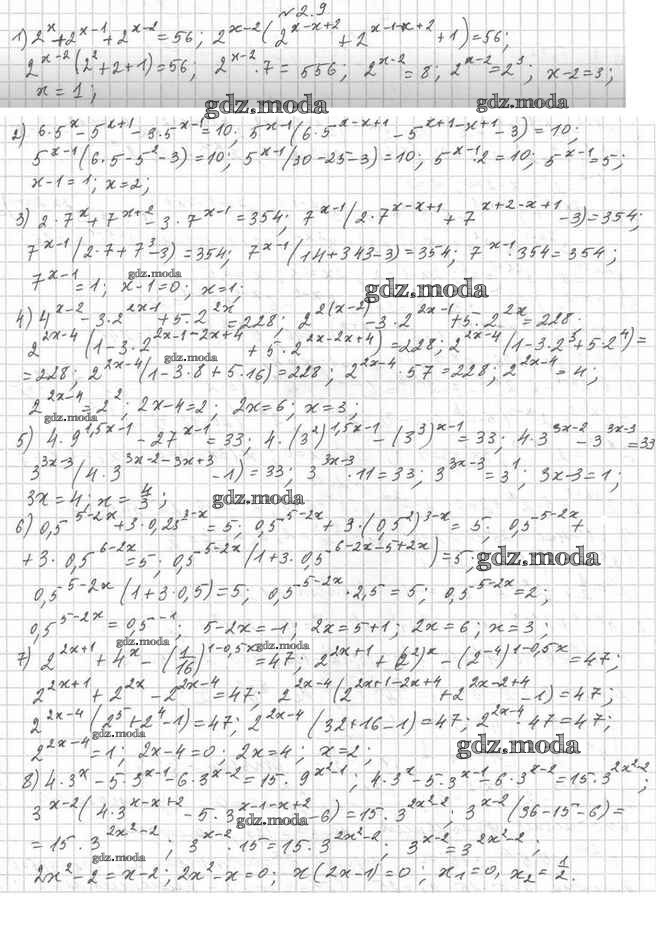 №2.9
1) 2^x+2^{x-1}+2^{x-2}=56; 2^{x-2}(2^{x-x+2}+2^{x-1-x+2}+1)=56;
2^{x-2}(2^2+2+1)=56; 2^{x-2}·7=556; 2^{x-2}=8; 2^{x-2}=2^3; x-2=3;
x=1;
gdz.moda
2) 6·5^x-5^{x+1}-3·5^{x-1}=10; 5^{x-1}(6·5^{x-x+1}-5^{x+1-x+1}-3)=10;
5^{x-1}(6·5-5^2-3)=10; 5^{x-1}(30-25-3)=10; 5^{x-1}·2=10; 5^{x-1}=5;
x-1=1; x=2;
3) 2·7^x+7^{x+2}-3·7^{x-1}=354; 7^{x-1}(2·7^{x-x+1}+7^{x+2-x+1}-3)=354;
7^{x-1}(2·7+7^3-3)=354; 7^{x-1}(14+343-3)=354; 7^{x-1}·354=354;
7^{x-1}=1; x-1=0; x=1;
gdz.moda
gdz.moda
4) 4^{x-2}-3·2^{2x-1}+5·2^{2x}=228; 2^{2(x-2)}-3·2^{2x-1}+5·2^{2x}=228.
2^{2x-4}(1-3·2^{2x-1-2x+4}+5·2^{2x-2x+4})=228; 2^{2x-4}(1-3·2^3+5·2^4)=
gdz.moda
=228; 2^{2x-4}(1-3·8+5·16)=228; 2^{2x-4}·57=228; 2^{2x-4}=4;
2^{2x-4}=2^2; 2x-4=2; 2x=6; x=3;
gdz.moda
5) 4·9^{1,5x-1}-27^{x-1}=33; 4·(3^2)^{1,5x-1}-(3^3)^{x-1}=33; 4·3^{3x-2}-3^{3x-3}=33
3^{3x-3}(4·3^{3x-2-3x+3}-1)=33; 3^{3x-3}·11=33; 3^{3x-3}=3^1; 3x-3=1;
3x=4; x=4/3;
gdz.moda
6) 0,5^{5-2x}+3·0,25^{3-x}=5; 0,5^{5-2x}+3·(0,5^2)^{3-x}=5; 0,5^{5-2x}+
+3·0,5^{6-2x}=5; 0,5^{5-2x}(1+3·0,5^{6-2x-5+2x})=5;
gdz.moda
0,5^{5-2x}(1+3·0,5)=5; 0,5^{5-2x}·2,5=5; 0,5^{5-2x}=2;
0,5^{5-2x}=0,5^{-1}; 5-2x=-1; 2x=5+1; 2x=6; x=3;
gdz.moda
gdz.moda
7) 2^{2x+1}+4^x-(1/16)^{1-0,5x}=47; 2^{2x+1}+(2^2)^x-(2^{-4})^{1-0,5x}=47;
2^{2x+1}+2^{2x}-2^{2x-4}=47; 2^{2x-4}(2^{2x+1-2x+4}+2^{2x-2+4}-1)=47;
2^{2x-4}(2^5+2^4-1)=47; 2^{2x-4}(32+16-1)=47; 2^{2x-4}·47=47;
gdz.moda
2^{2x-4}=1; 2x-4=0; 2x=4; x=2;
gdz.moda
8) 4·3^x-5·3^{x-1}-6·3^{x-2}=15·9^{x^2-1}; 4·3^x-5·3^{x-1}-6·3^{x-2}=15·3^{2x^2-2};
gdz.moda
3^{x-2}(4·3^{x-x+2}-5·3^{x-1-x+2}-6)=15·3^{2x^2-2}; 3^{x-2}(36-15-6)=
gdz.moda
=15·3^{2x^2-2}; 3^{x-2}·15=15·3^{2x^2-2}; 3^{x-2}=3^{2x^2-2};
gdz.moda
2x^2-2=x-2; 2x^2-x=0; x(2x-1)=0; x_1=0, x_2=1/2.